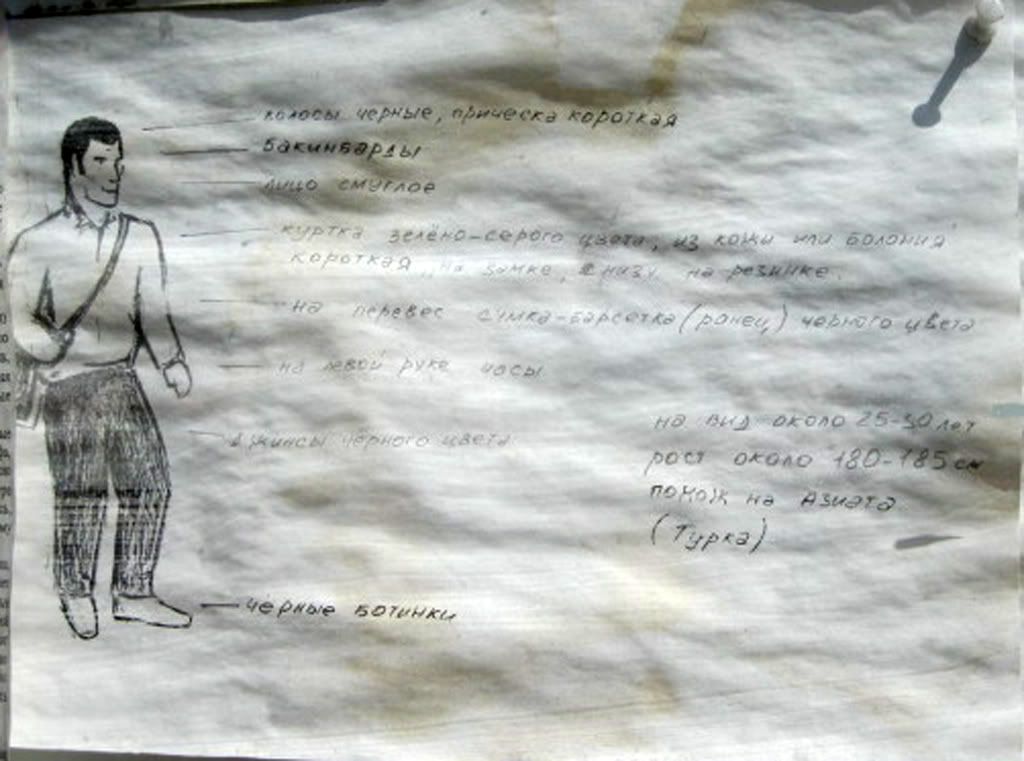 волосы черные, прическа короткая
бакинбарды
лицо смуглое
куртка зелёно-серого цвета, из кожи или болония
короткая, на замке, снизу на резинке.
на перевес сумка-барсетка (ранец) черного цвета
на левой руке часы
джинсы чёрного цвета
на вид около 25-30 лет
рост около 180-185 см
похож на Азиата
(Турка)
чёрные ботинки